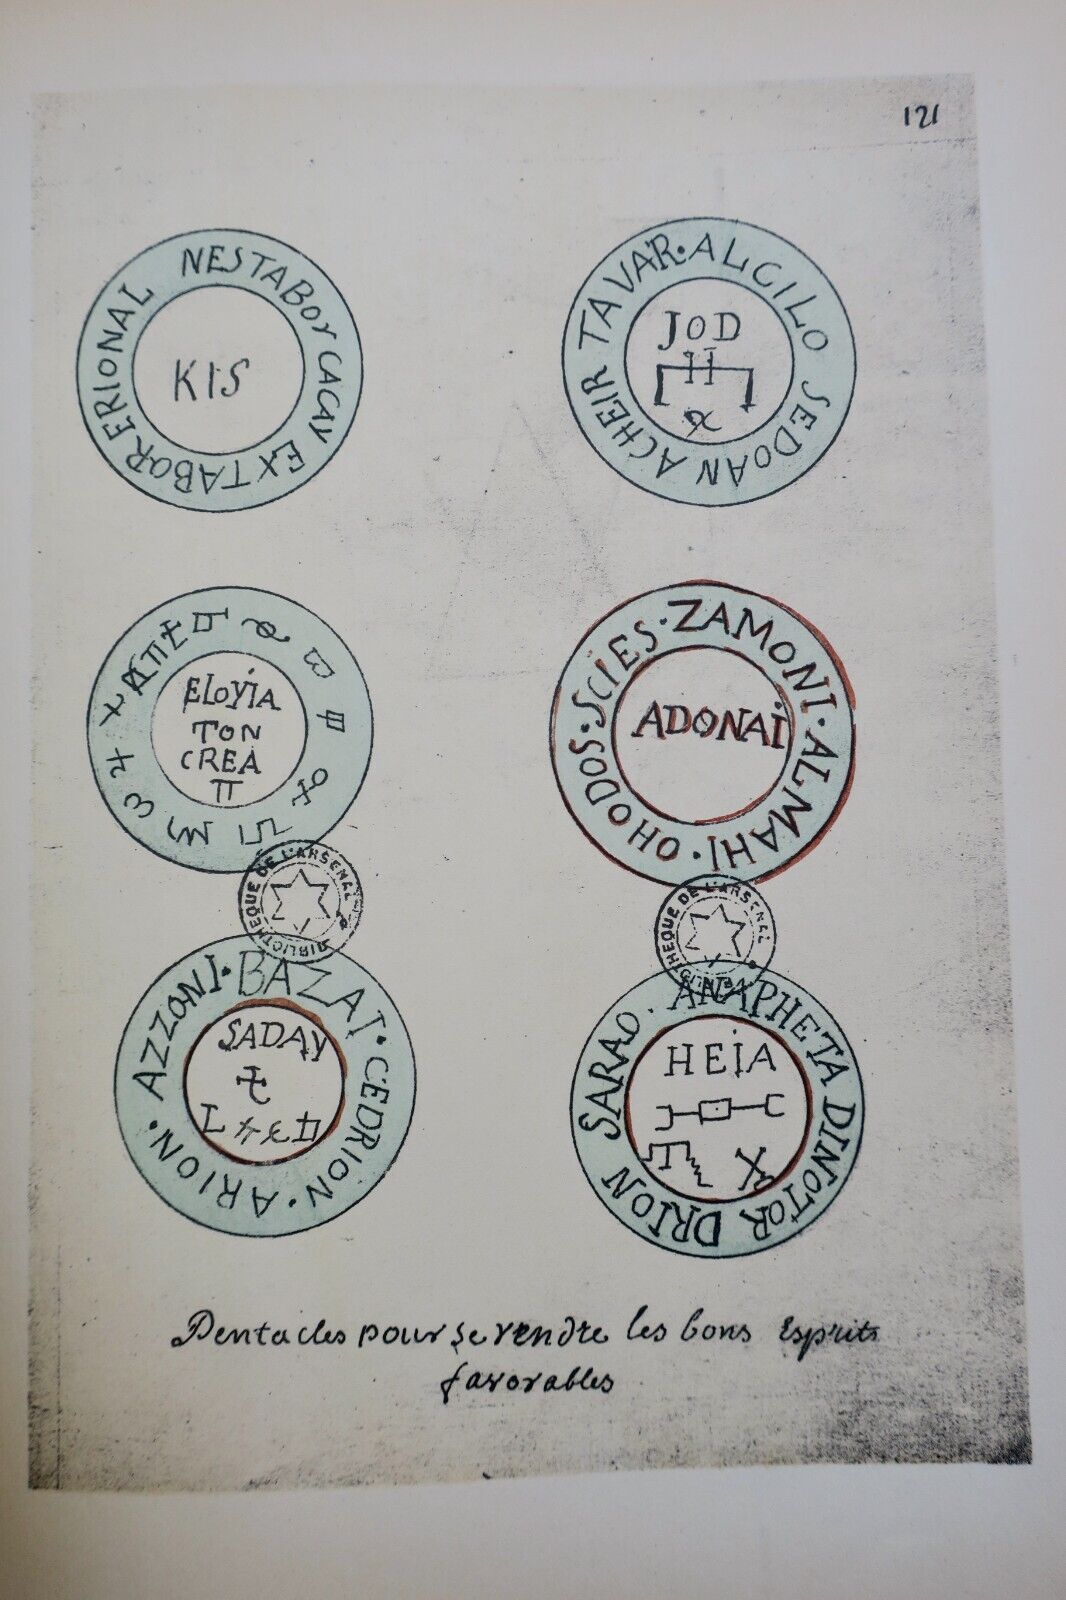 121
NESTABOY CACAY EXTABOR ERIONAL
KIS
TAVAR · ALCILO SEDOAN ACHEIR
JOD
ELOYIA
TON
CREA
SCIES · ZAMONI · ALMAHI · OHODOS ·
ADONAI
BIBLIOTHEQUE DE L'ARSENAL
BIBLIOTHEQUE DE L'ARSENAL
AZZONI · BAZAI · CEDRION · ARION ·
SADAY
ANAPHETA DINOTOR DRION SARAO ·
HEIA
Pentacles pour se rendre les bons Esprits
favorables